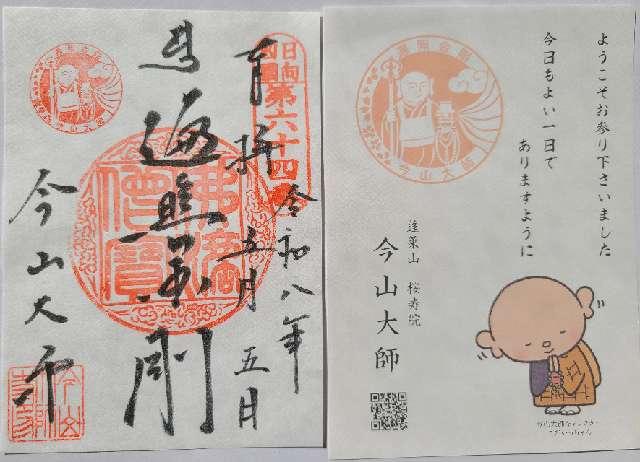 奉拝
令和八年
五月五日
第六十四
遍照金剛
佛法僧寶
今山大師
今山大師
ようこそお参り下さいました
今日もよい一日で
ありますように
今山大師
蓬莱山 桜寿院
今山大師